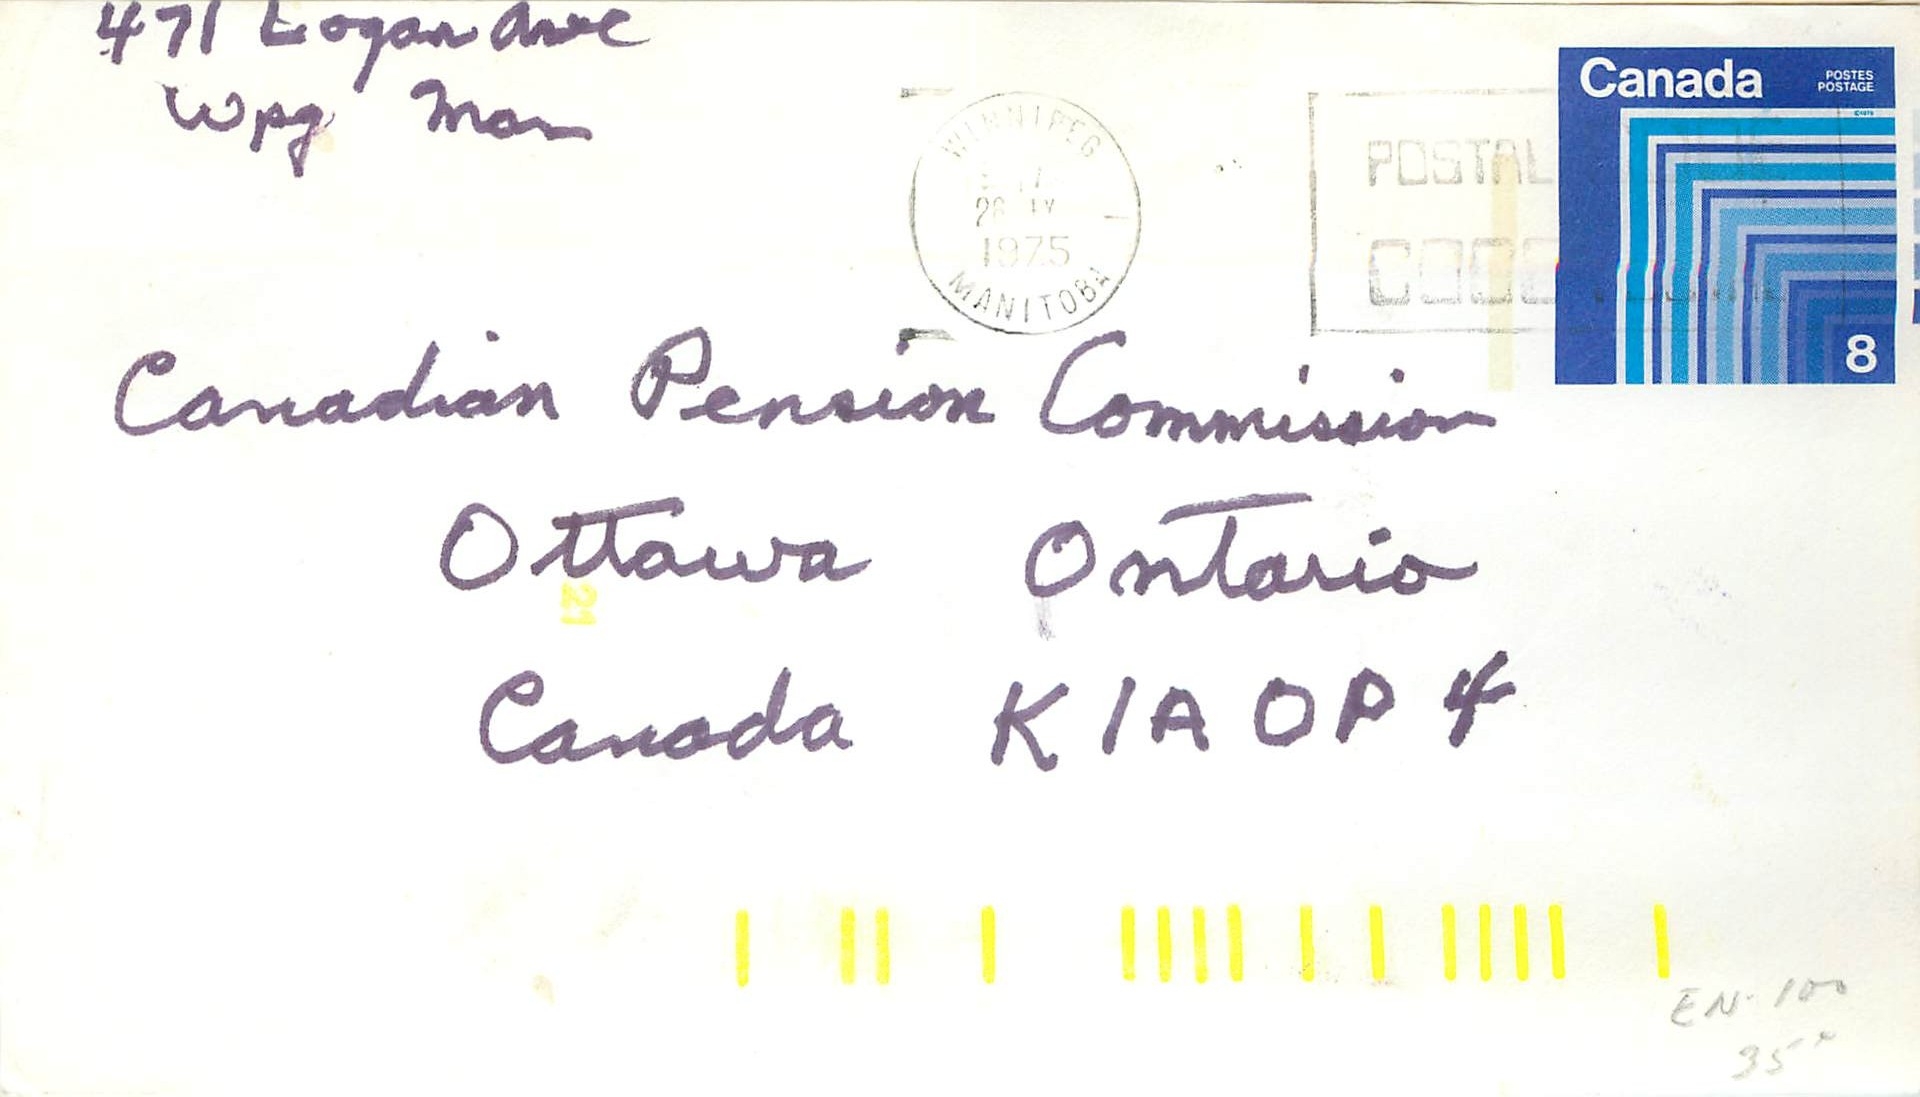 471 Logan Ave
Wpg Man
Canada
POSTES
POSTAGE
8
WINNIPEG
1975
MANITOBA
POSTAL
CODE
Canadian Pension Commission
Ottawa Ontario
21
Canada K1A 0P4
EN-100
35